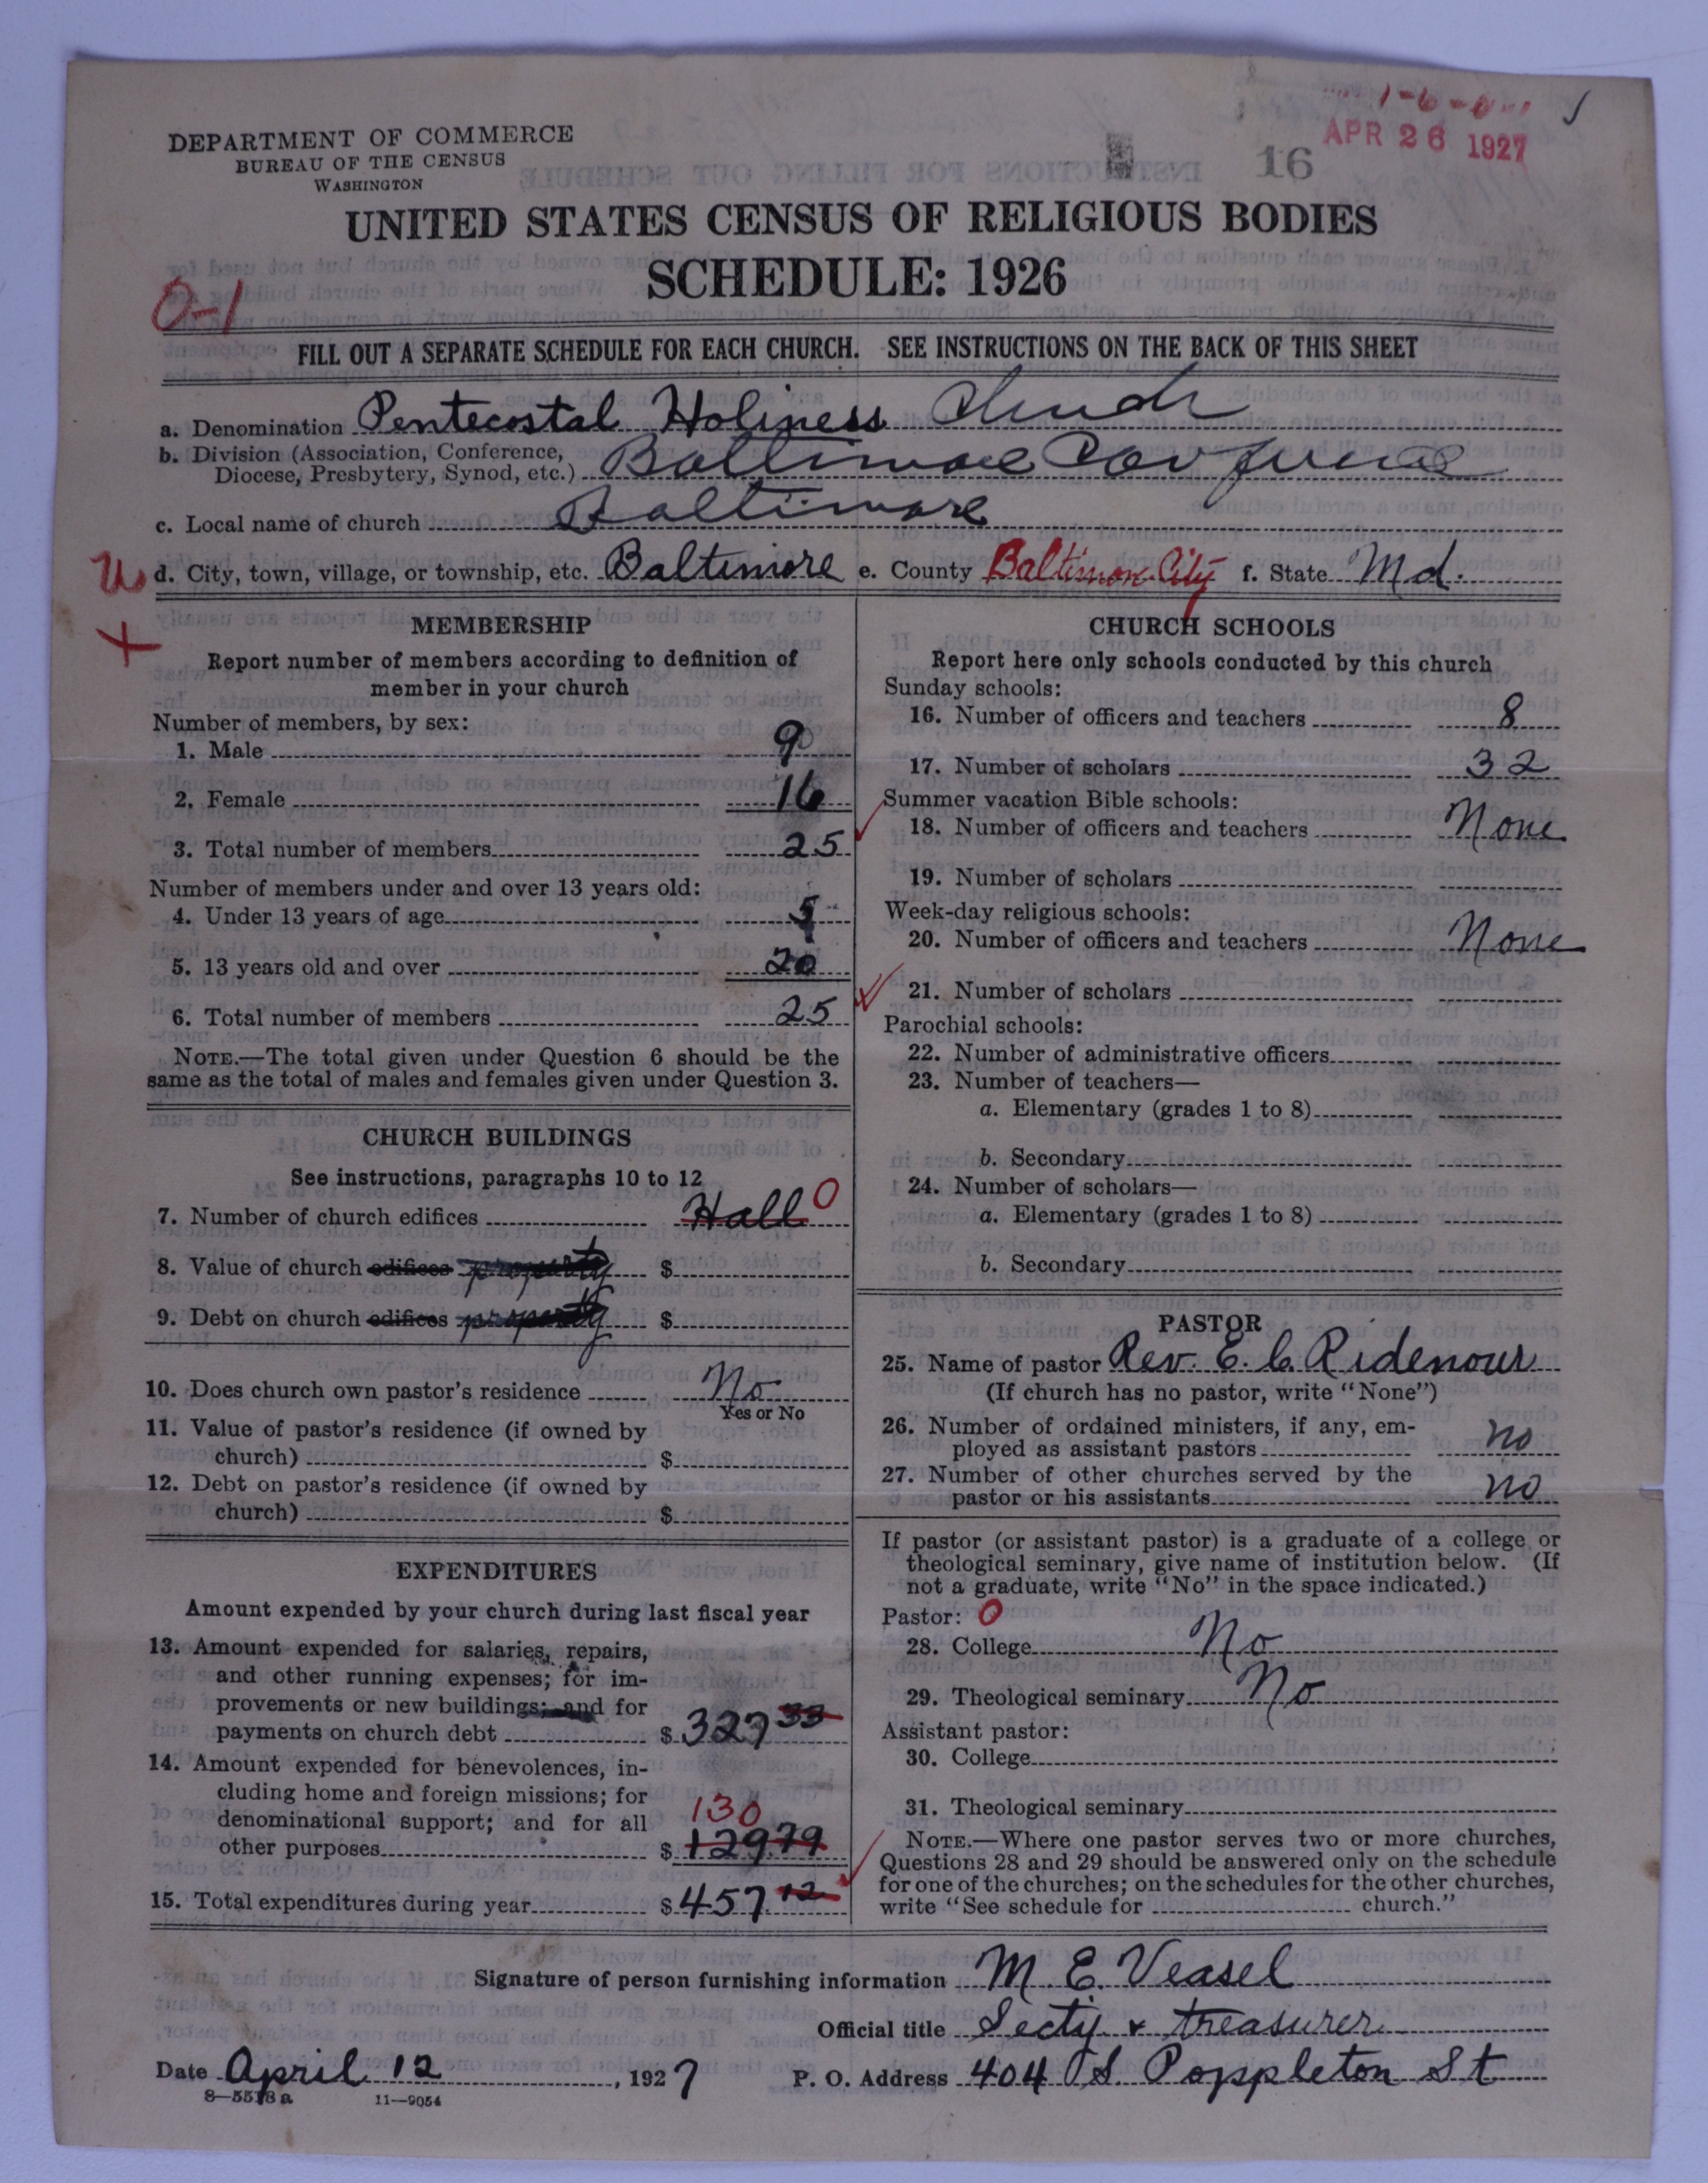 DEPARTMENT OF COMMERCE
BUREAU OF THE CENSUS
WASHINGTON
16
APR 26 1927
UNITED STATES CENSUS OF RELIGIOUS BODIES
SCHEDULE: 1926
0-1
FILL OUT A SEPARATE SCHEDULE FOR EACH CHURCH. SEE INSTRUCTIONS ON THE BACK OF THIS SHEET
a. Denomination Pentecostal Holiness Church
b. Division (Association, Conference,
Diocese, Presbytery, Synod, etc.) Baltimore Conference
c. Local name of church Baltimore
d. City, town, village, or township, etc. Baltimore e. County Baltimore City f. State Md.
MEMBERSHIP
Report number of members according to definition of
member in your church
Number of members, by sex:
1. Male 9
2. Female 16
3. Total number of members 25
Number of members under and over 13 years old:
4. Under 13 years of age 5
5. 13 years old and over 20
6. Total number of members 25
NOTE.—The total given under Question 6 should be the
same as the total of males and females given under Question 3.
CHURCH BUILDINGS
See instructions, paragraphs 10 to 12
7. Number of church edifices Hall 0
8. Value of church edifices property $
9. Debt on church edifices property $
10. Does church own pastor's residence No
Yes or No
11. Value of pastor's residence (if owned by
church) $
12. Debt on pastor's residence (if owned by
church) $
EXPENDITURES
Amount expended by your church during last fiscal year
13. Amount expended for salaries, repairs,
and other running expenses; for im-
provements or new buildings; and for
payments on church debt $ 327 33
14. Amount expended for benevolences, in-
cluding home and foreign missions; for
denominational support; and for all 130
other purposes $ 129.79
15. Total expenditures during year $ 457 12
CHURCH SCHOOLS
Report here only schools conducted by this church
Sunday schools:
16. Number of officers and teachers 8
17. Number of scholars 32
Summer vacation Bible schools:
18. Number of officers and teachers None
19. Number of scholars
Week-day religious schools:
20. Number of officers and teachers None
21. Number of scholars
Parochial schools:
22. Number of administrative officers
23. Number of teachers—
a. Elementary (grades 1 to 8)
b. Secondary
24. Number of scholars—
a. Elementary (grades 1 to 8)
b. Secondary
PASTOR
25. Name of pastor Rev. E. C. Ridenour
(If church has no pastor, write "None")
26. Number of ordained ministers, if any, em-
ployed as assistant pastors no
27. Number of other churches served by the
pastor or his assistants no
If pastor (or assistant pastor) is a graduate of a college or
theological seminary, give name of institution below. (If
not a graduate, write "No" in the space indicated.)
Pastor: 0
28. College No
29. Theological seminary No
Assistant pastor:
30. College
31. Theological seminary
NOTE.—Where one pastor serves two or more churches,
Questions 28 and 29 should be answered only on the schedule
for one of the churches; on the schedules for the other churches,
write "See schedule for church."
Signature of person furnishing information M. E. Veasel
Official title Secty & treasurer
Date April 12, 1927 P. O. Address 404 S. Poppleton St
8—5518 a 11—9054